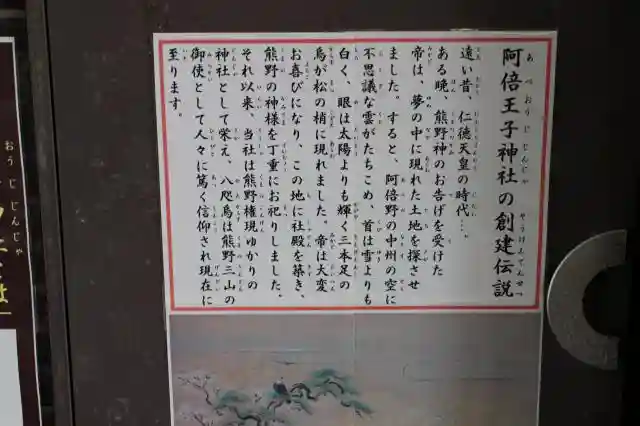 阿倍王子神社の創建伝説
遠い昔、仁徳天皇の時代…。
ある晩、熊野神のお告げを受けた
帝は、夢の中に現れた土地を探させ
ました。すると、阿倍野の中州の空に
不思議な雲がたちこめ、首は雪よりも
白く、眼は太陽よりも輝く三本足の
烏が松の梢に現れました。帝は大変
お喜びになり、この地に社殿を築き、
熊野の神様を丁重にお祀りしました。
それ以来、当社は熊野権現ゆかりの
神社として栄え、八咫烏は熊野三山の
御使として人々に篤く信仰され現在に
至ります。
おうじじんじゃ